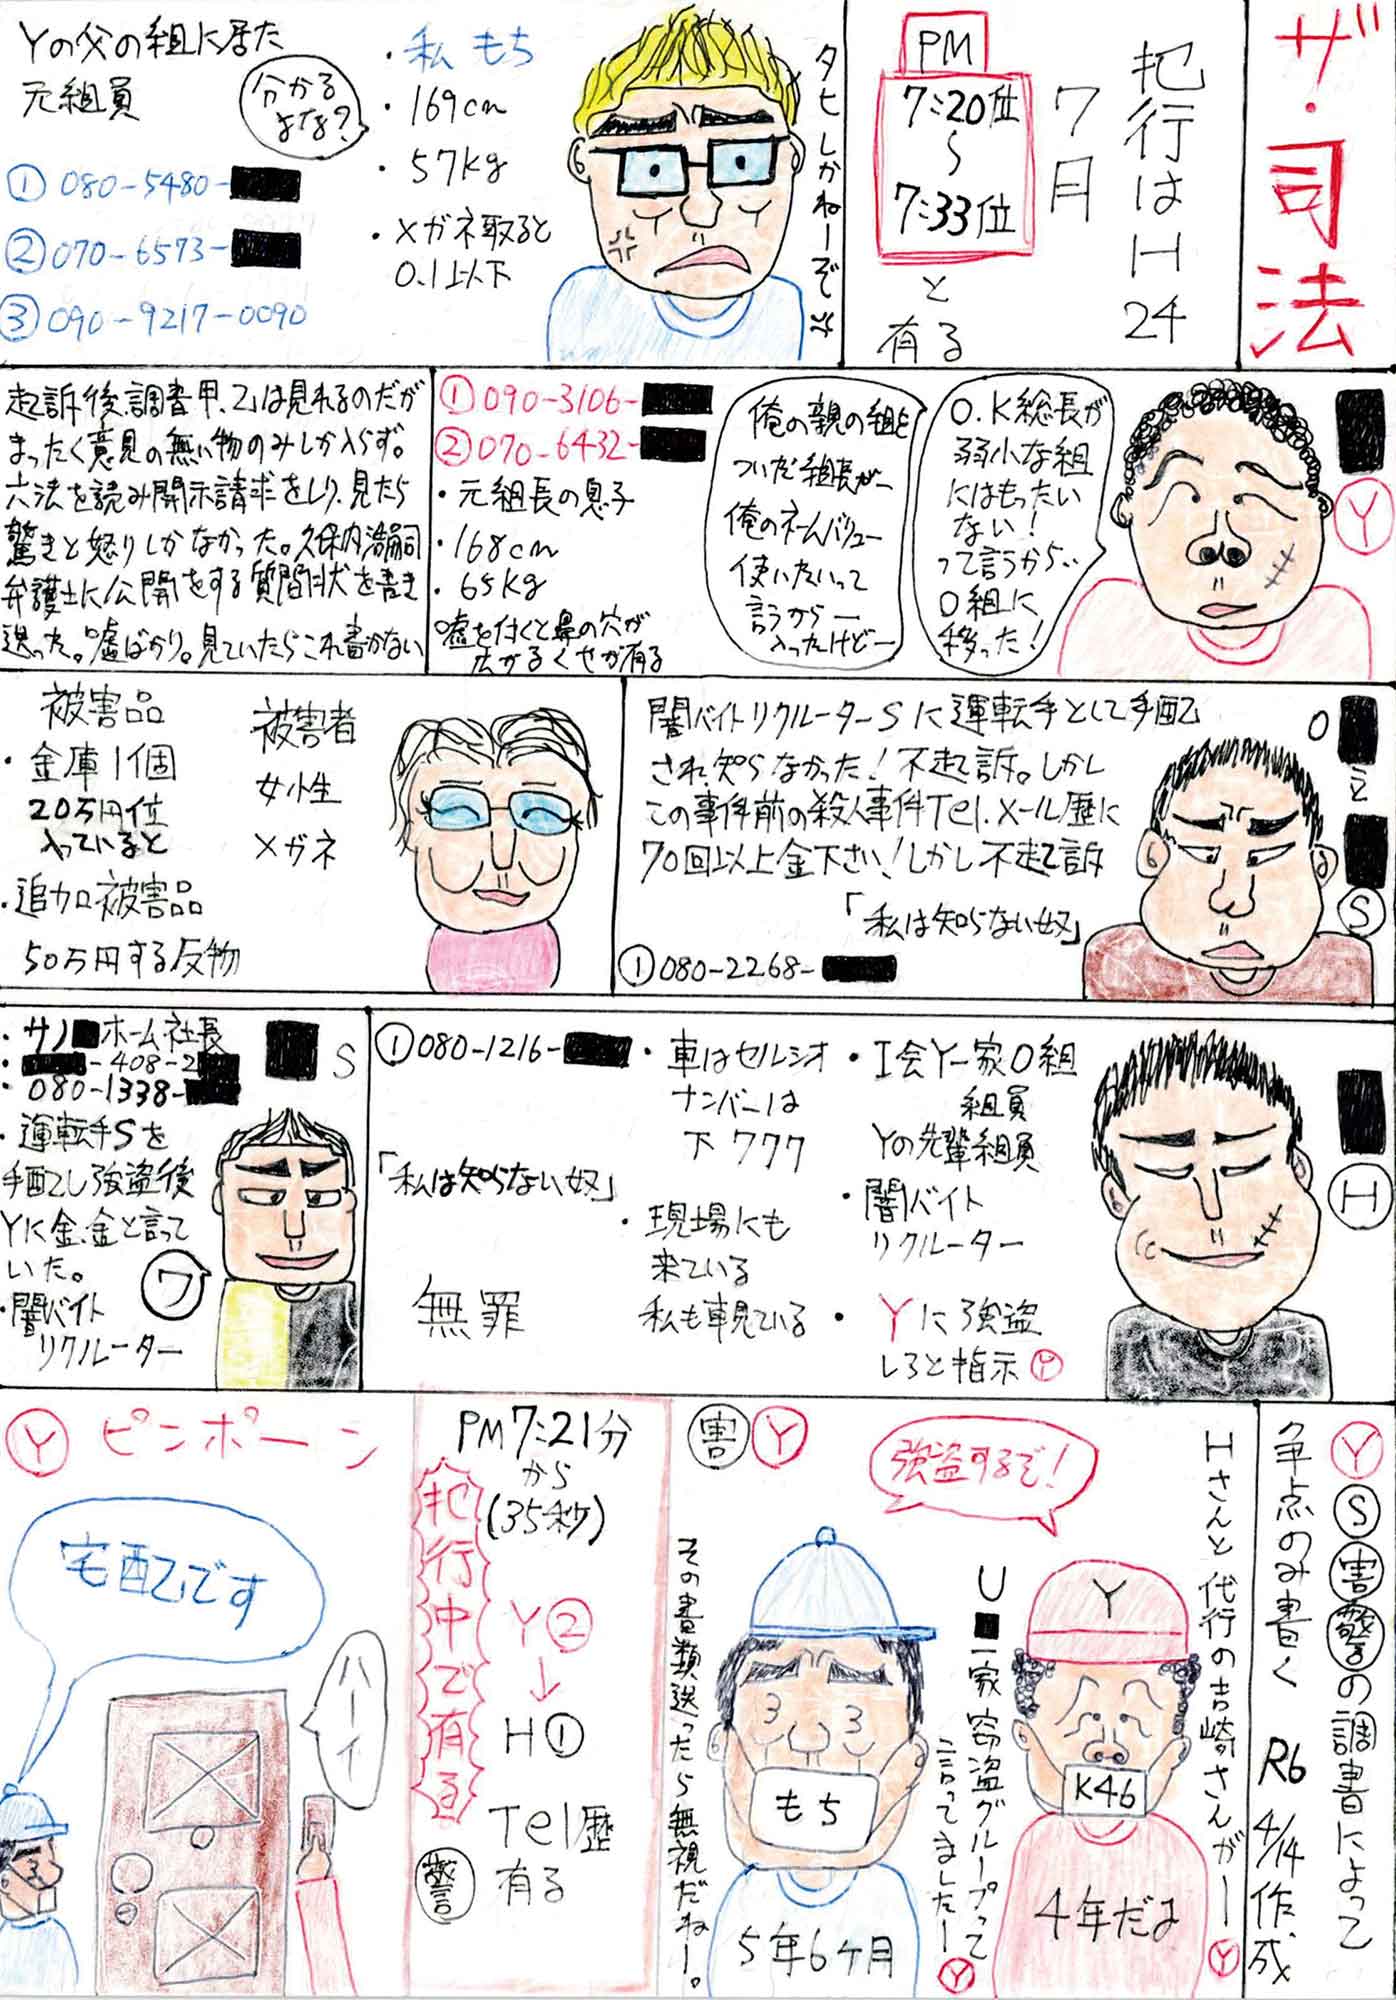 ザ・司法
犯行はH24
7月
PM
7:20位
〜
7:33位
と
有る
タヒしかねーぞ
・私 もち
・169cm
・57kg
・メガネ取ると
0.1以下
Yの父の組に居た
元組員
分かる
よな?
① 080-5480-
② 070-6573-
③ 090-9217-0090
Y
O.K総長が
弱小な組
にはもったい
ない!
って言うから..
O組に
移った!
俺の親の組を
ついだ組長がー
俺のネームバリュー
使いたいって
言うからー
入ったけどー
① 090-3106-
② 070-6432-
・元組長の息子
・168cm
・65kg
嘘を付くと鼻の穴が
広がるくせが有る
起訴後、調書甲、乙は見れるのだが
まったく意見の無い物のみしか入らず。
六法を読み開示請求をしり、見たら
驚きと怒りしかなかった。久保内浩嗣
弁護士に公開をする質問状を書き
送った。嘘ばかり。見ていたらこれ書かない
O
立
S
闇バイトリクルーターSに運転手として手配
され、知らなかった!不起訴。しかし
この事件前の殺人事件Tel.メール歴に
70回以上金下さい!しかし不起訴
「私は知らない奴」
① 080-2268-
被害者
女性
メガネ
被害品
・金庫1個
20万円位
入っていると
・追加被害品
50万円する反物
H
・I会Y一家O組
組員
Yの先輩組員
・闇バイト
リクルーター
・Yに強盗
しろと指示 Y
・車はセルシオ
ナンバーは
下777
・現場にも
来ている
私も車見ている
① 080-1216-
「私は知らない奴」
無罪
S
・サノ ホーム社長
・ -408-2
・080-1338-
・運転手Sを
手配し強盗後
Yに金.金と言って
いた。
・闇バイト
リクルーター
ワ
Y S 害 警の調書によって
争点のみ書く R6 4/14作成
害 Y
強盗するぞ!
Hさんと代行の吉崎さんがー Y
U 一家窃盗グループって
言ってましたー Y
Y
K46
4年だよ
もち
5年6ヶ月
その書類送ったら無視だねー。
PM7:21分
から
(35秒)
Y②
↓
H①
Tel歴
有る
警
犯行中で有る
Y ピンポーン
宅配です
ハーイ